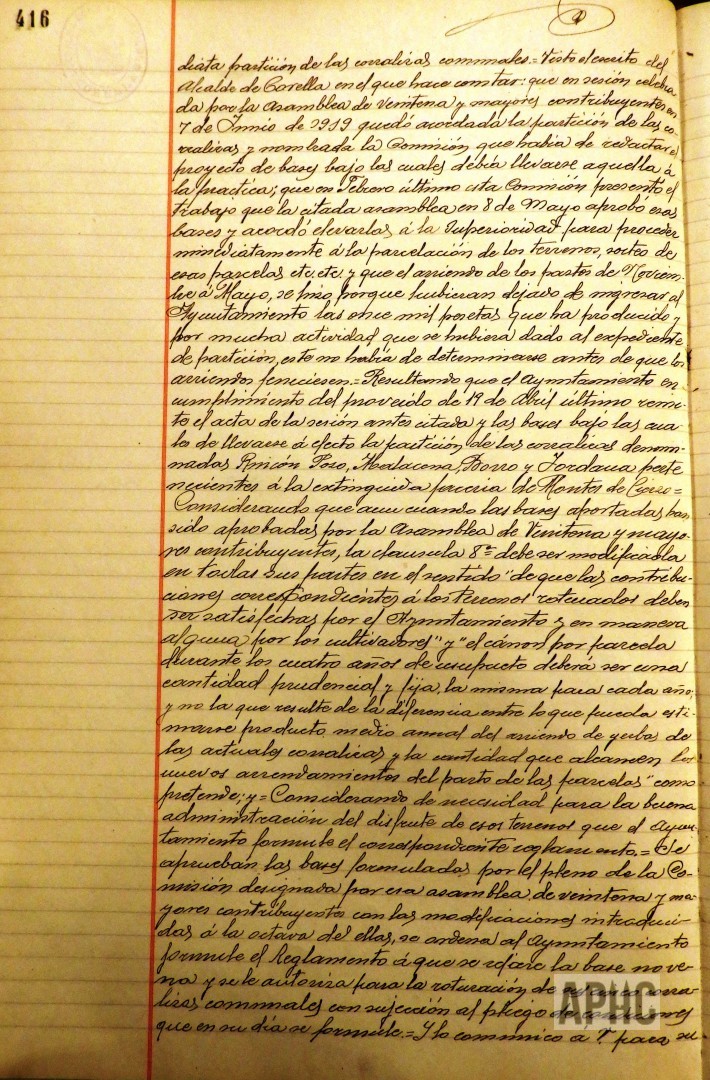 416
diata partición de las corralizas comunales.= Visto el escrito del
Alcalde de Corella en el que hace constar: que en sesión celebra
da por la Asamblea de Veintena y mayores contribuyentes en
7 de Junio de 1919 quedó acordada la partición de las co-
rralizas y nombrada la Comisión que había de redactar el
proyecto de bases bajo las cuales debía llevarse aquella á
la práctica; que en Febrero último esta Comisión presentó el
trabajo que la citada asamblea en 8 de Mayo aprobó esas
bases y acordó elevarlas á la Superioridad para proceder
inmediatamente á la parcelación de los terrenos, sorteo de
esas parcelas etc. etc. y que el arriendo de los pastos de Noviem-
bre á Mayo, se hizo porque hubieran dejado de ingresar al
Ayuntamiento las once mil pesetas que ha producido y
por mucha actividad que se hubiera dado al expediente
de partición, este no había de determinarse antes de que los
arriendos feneciesen.= Resultando que el Ayuntamiento en
cumplimiento del proveido de 19 de Abril último remi-
te el acta de la sesión antes citada y las bases bajo las cua
les de llevarse á efecto la partición de las corralizas denomi-
nadas Rincón Poso, Badacena, y Jordana perte
necientes á la extinguida faceria de Montes de Cierzo=
Considerando que aun cuando las bases aportadas han
sido aprobadas por la Asamblea de Veintena y mayo-
res contribuyentes, la clausula 8ª debe ser modificada
en todas sus partes en el sentido "de que las contribu-
ciones correspondientes á los terrenos roturados deben
ser satisfechas por el Ayuntamiento y en manera
alguna por los cultivadores" y "el cánon por parcela
durante los cuatro años de usufructo deberá ser una
cantidad prudencial y fija, la misma para cada año,
y no la que resulte de la diferencia entre lo que pueda esti-
marse producto medio anual del arriendo de yerbas de
las actuales corralizas y la cantidad que alcancen los
nuevos arrendamientos del pasto de las parcelas" como
pretende; y= Considerando de necesidad para la buena
administración del disfrute de esos terrenos que el Ayun-
tamiento formule el correspondiente reglamento.= Se
aprueban las bases formuladas por el pleno de la Co-
misión designada por esa asamblea de veintena y ma-
yores contribuyentes con las modificaciones introduci-
das á la octava de ellas, se ordena al Ayuntamiento
formule el Reglamento á que se refiere la base nove-
na y se le autoriza para la roturación de corra-
lizas comunales con sujección al pliego de condiciones
que en su día se formule.= Y lo comunico a V. para su
APHC